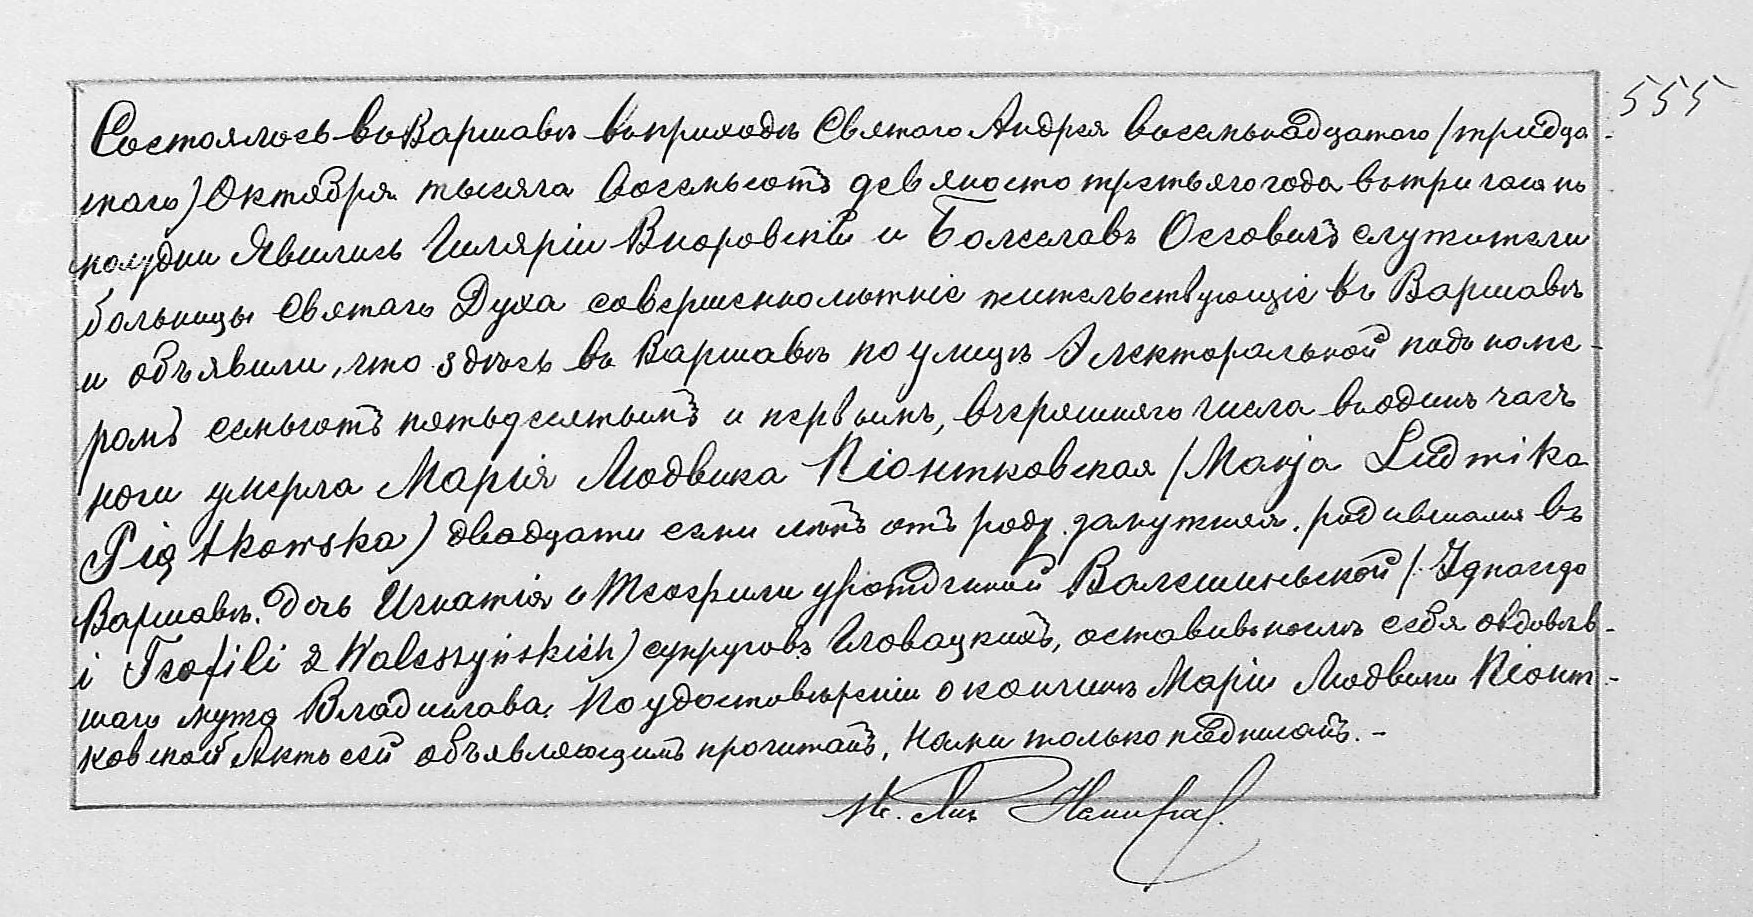 555
Состоялось въ Варшавѣ въ приходѣ Святаго Андрея восемьнадцатаго /тридца-
таго) Октября тысяча восемьсотъ девяносто третьяго года въ три часа по
полудни Явились Гиляріи и Болеславъ Оссовичъ служители
больницы Святаго Духа совершеннолѣтніе жительствующіе въ Варшавѣ
и объявили, что здѣсь въ Варшавѣ по улицѣ Электоральной подъ номе-
ромъ семьсотъ пятьдесятымъ и первымъ, вчерашняго числа въ одинъ часъ
ночи умерла Марія Людвика Піонтковская /Marja Ludwika
Piątkowska) двадцати семи лѣтъ отъ роду. замужняя. родившаяся въ
Варшавѣ. дочь Игнатія и Теофили урожденной Валешиньской /Ignacego
i Teofili z Waleszyńskich) супруговъ Гловацкихъ, оставивъ послѣ себя овдовѣв-
шаго мужа Владислава. По удостовѣреніи о кончинѣ Маріи Людвики Піонт-
ковской Актъ сей объявляющимъ прочитанъ, нами только подписанъ. -